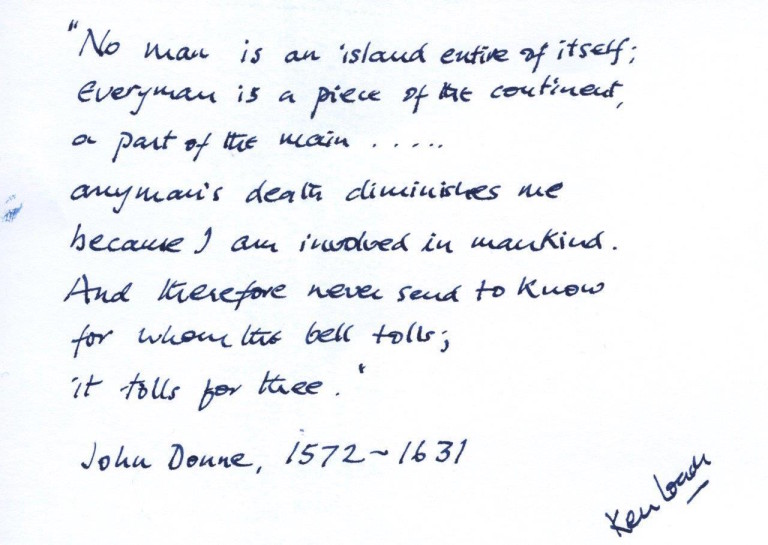 "No man is an island entire of itself;
Everyman is a piece of the continent,
a part of the main .....
anyman's death diminishes me
because I am involved in mankind.
And therefore never send to know
for whom the bell tolls;
it tolls for thee."
John Donne, 1572~1631
Ken Loach